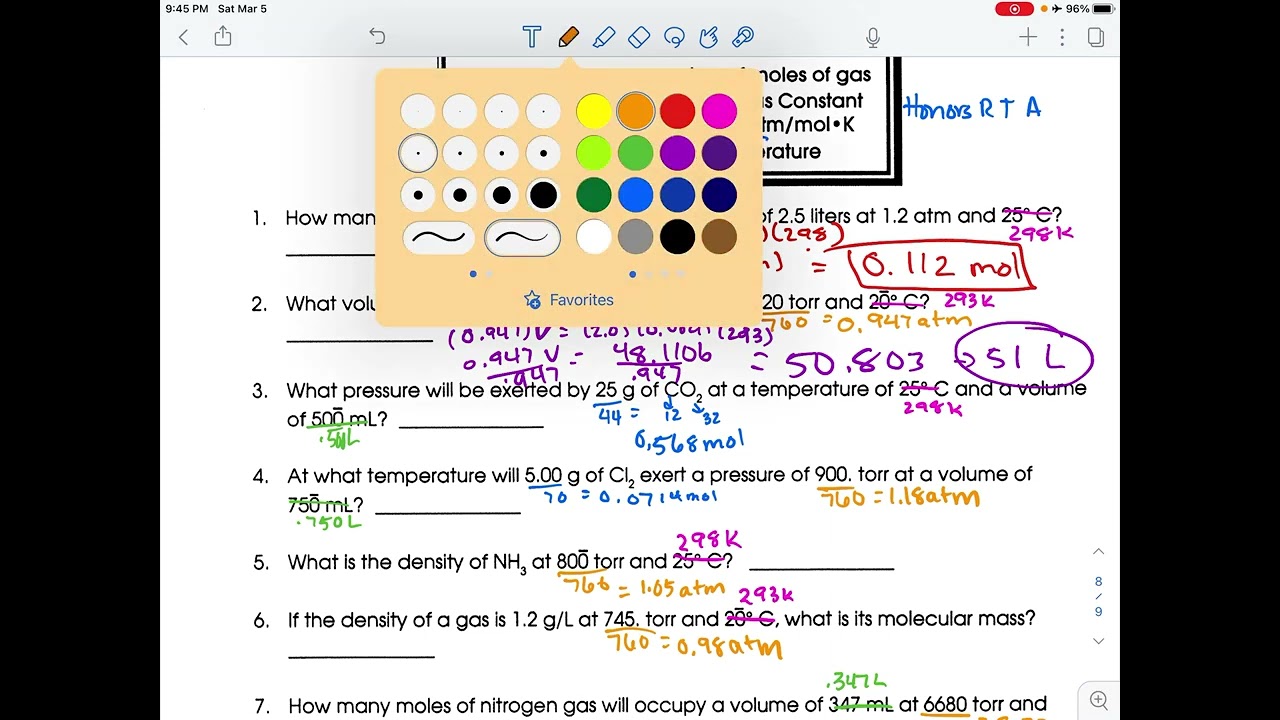 9:45 PM Sat Mar 5
96%
T
moles of gas
s Constant
tm/mol•K
rature
Honors R T A
1. How man
of 2.5 liters at 1.2 atm and 25° C?
298K
)(298)
) = 0.112 mol
2. What volu
20 torr and 20̅° C? 293K
760 = 0.947atm
(0.947)V = (2.0)(0.0821)(293)
0.947 V = 48.1106 = 50.803 → 51 L
.947 .947
3. What pressure will be exerted by 25 g of CO2 at a temperature of 25° C and a volume
44 = 12 32
298K
of 500̅ mL?
.500L
0.568mol
4. At what temperature will 5.00 g of Cl2 exert a pressure of 900. torr at a volume of
70 = 0.0714mol
760 = 1.18atm
750̅ mL?
.750L
298K
5. What is the density of NH3 at 800̅ torr and 25° C?
760 = 1.05atm
293K
6. If the density of a gas is 1.2 g/L at 745. torr and 20̅° C, what is its molecular mass?
760 = 0.98atm
.347L
7. How many moles of nitrogen gas will occupy a volume of 347 mL at 6680 torr and
Favorites
8
/
9